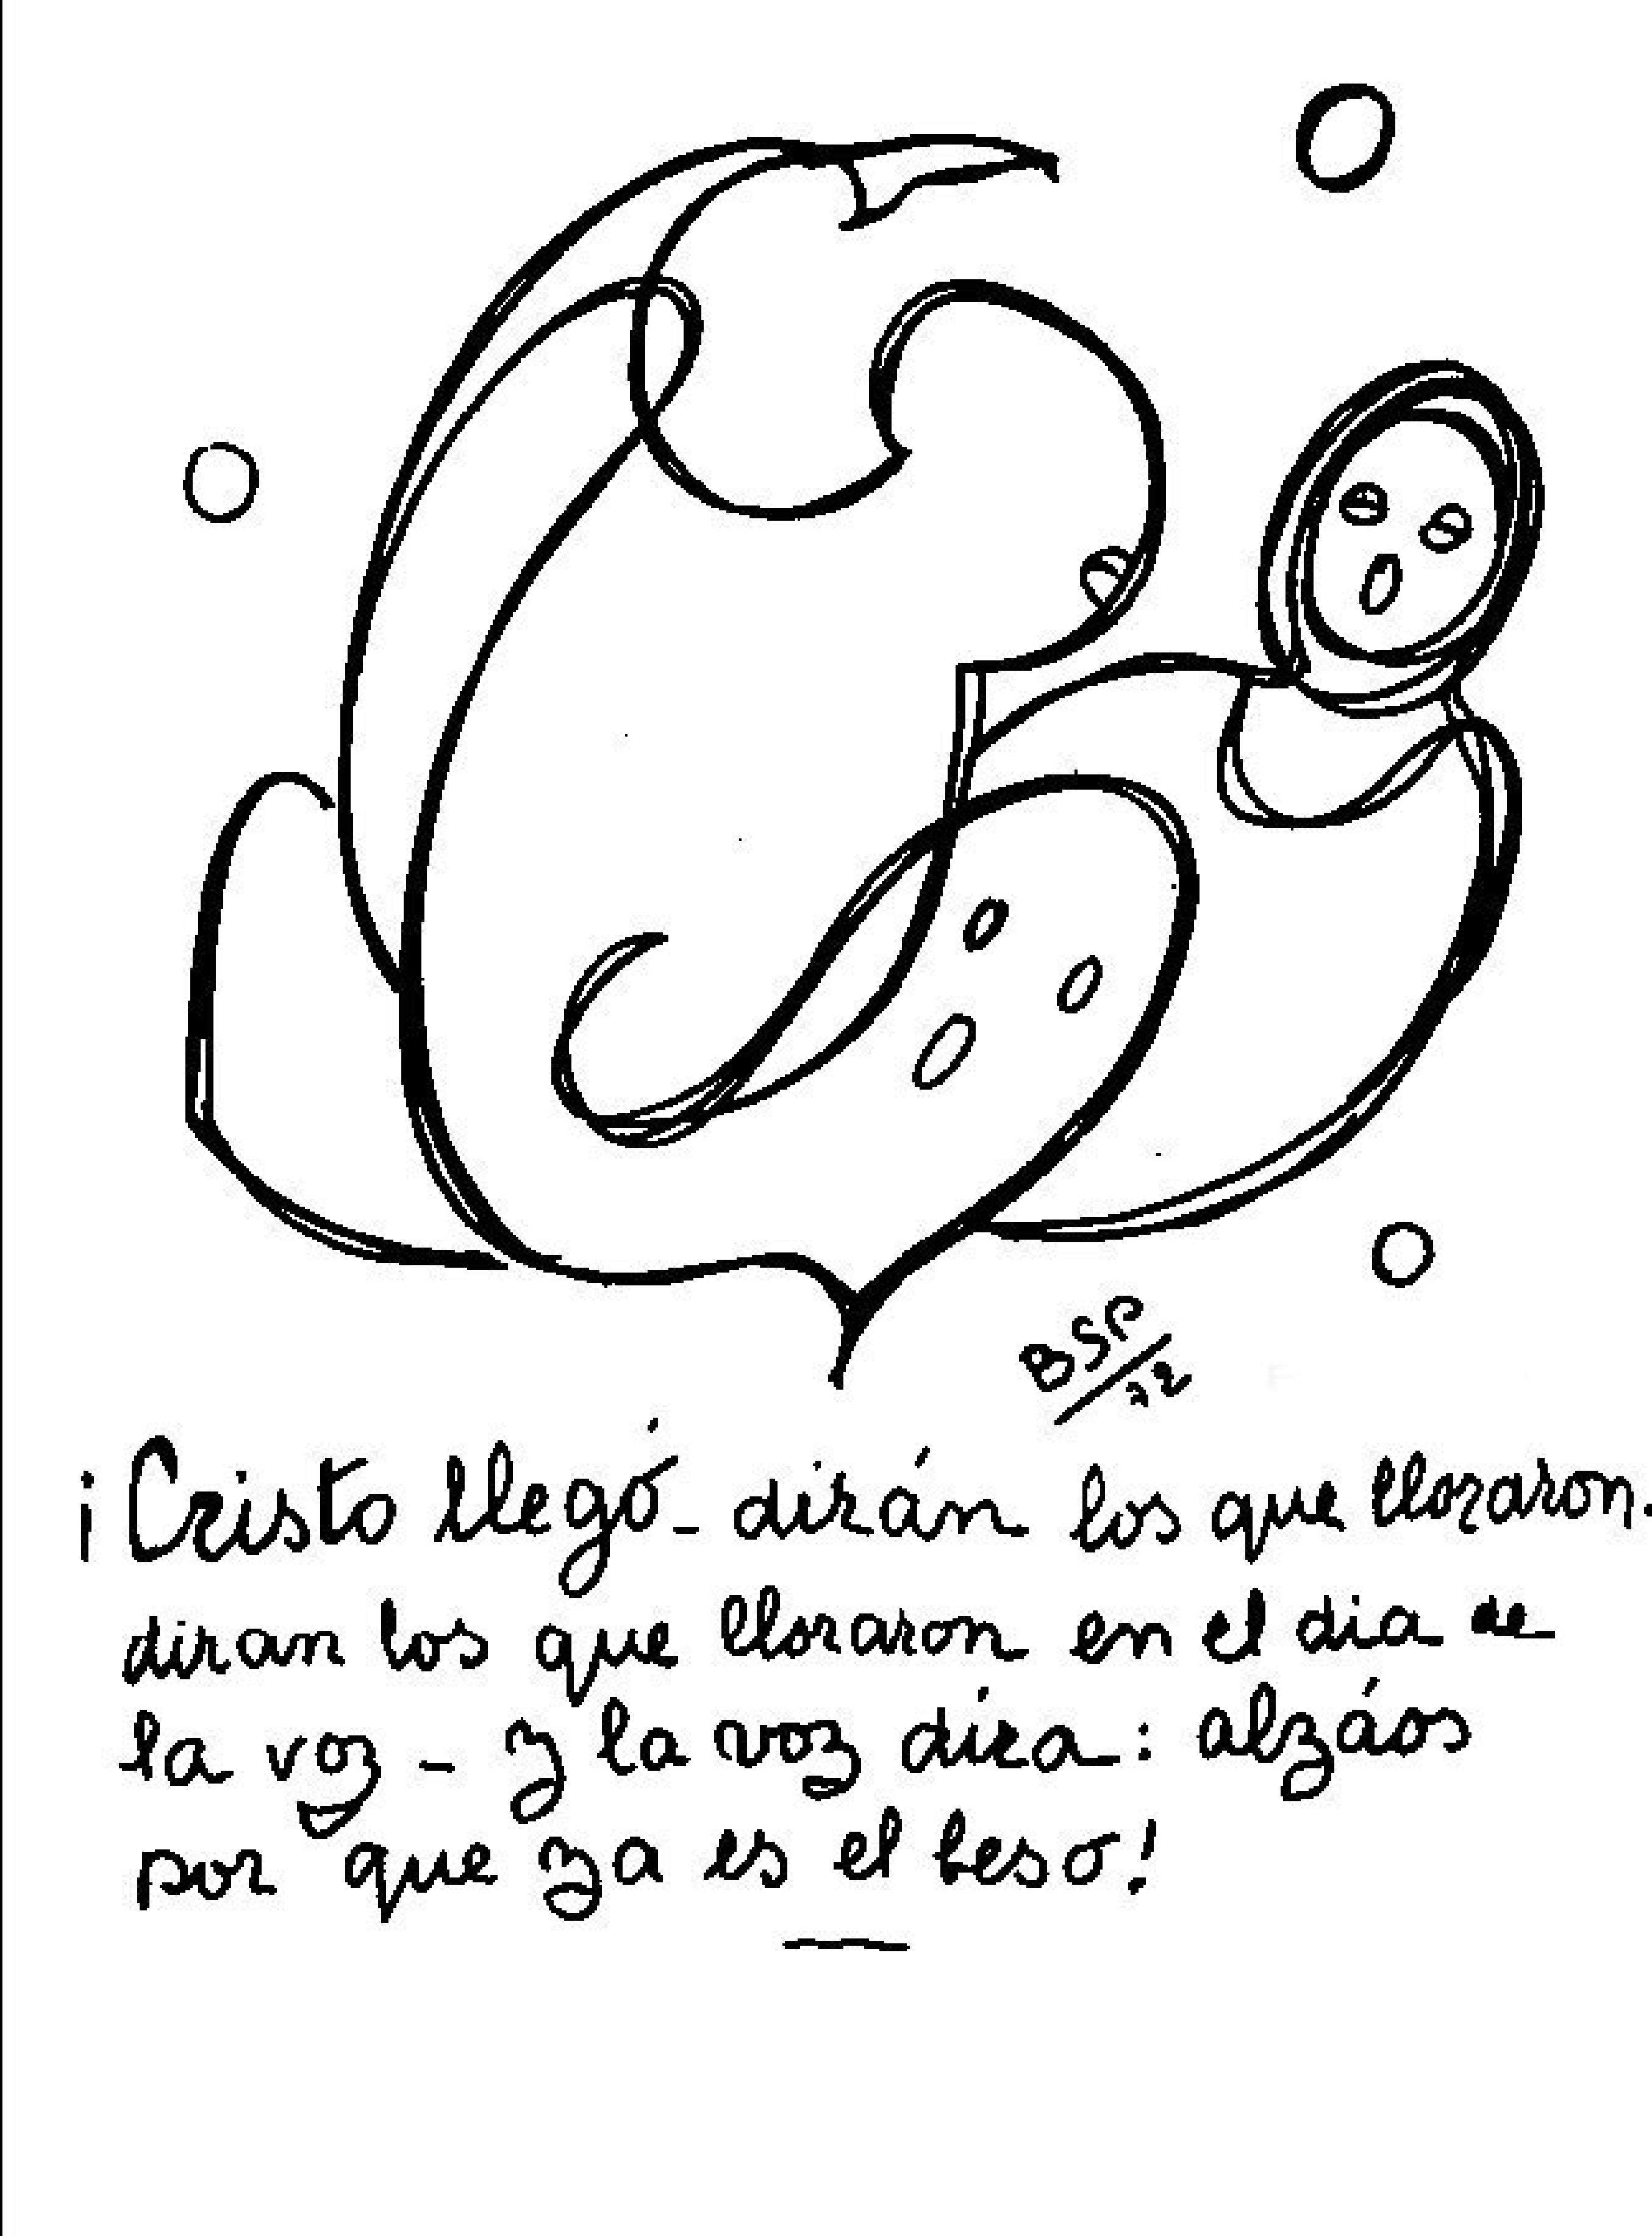 BSP/72
¡Cristo llegó - dirán los que lloraron.
diran los que lloraron en el dia de
la voz - y la voz dira: alzáos
por que ya es el beso!